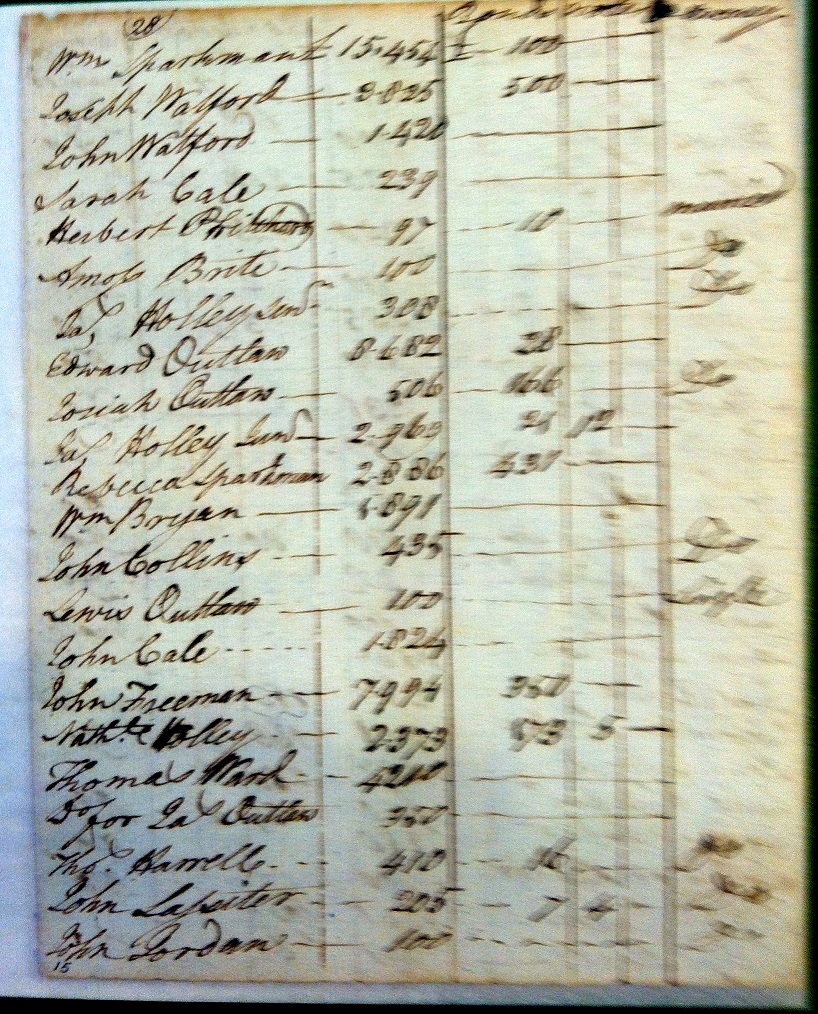 28
Wm Sparkman 15.454 100
Joseph Watford 3.825 500
John Watford 1.420
Sarah Cale 239
Herbert Pritchard 97 10 married
Amos Brite 100 Do
Jas Holley Senr 308 Do
Edward Outlaw 8.682 28
Josiah Outlaw 506 166 Do
Jas Holley Junr 2.969 21 12
Rebecca Sparkman 2.886 430
Wm Bryan 1.891
John Collins 435 Do
Lewis Outlaw 100 Single
John Cale 1.824
John Freeman 7.994 350
Nathl Holley 2.373 573 5
Thomas Ward 4200
Do for Jas Outlaw 350
Thos. Harrell 410 16 Do
John Lassiter 205 7 4
John Jordan 100 Do
15